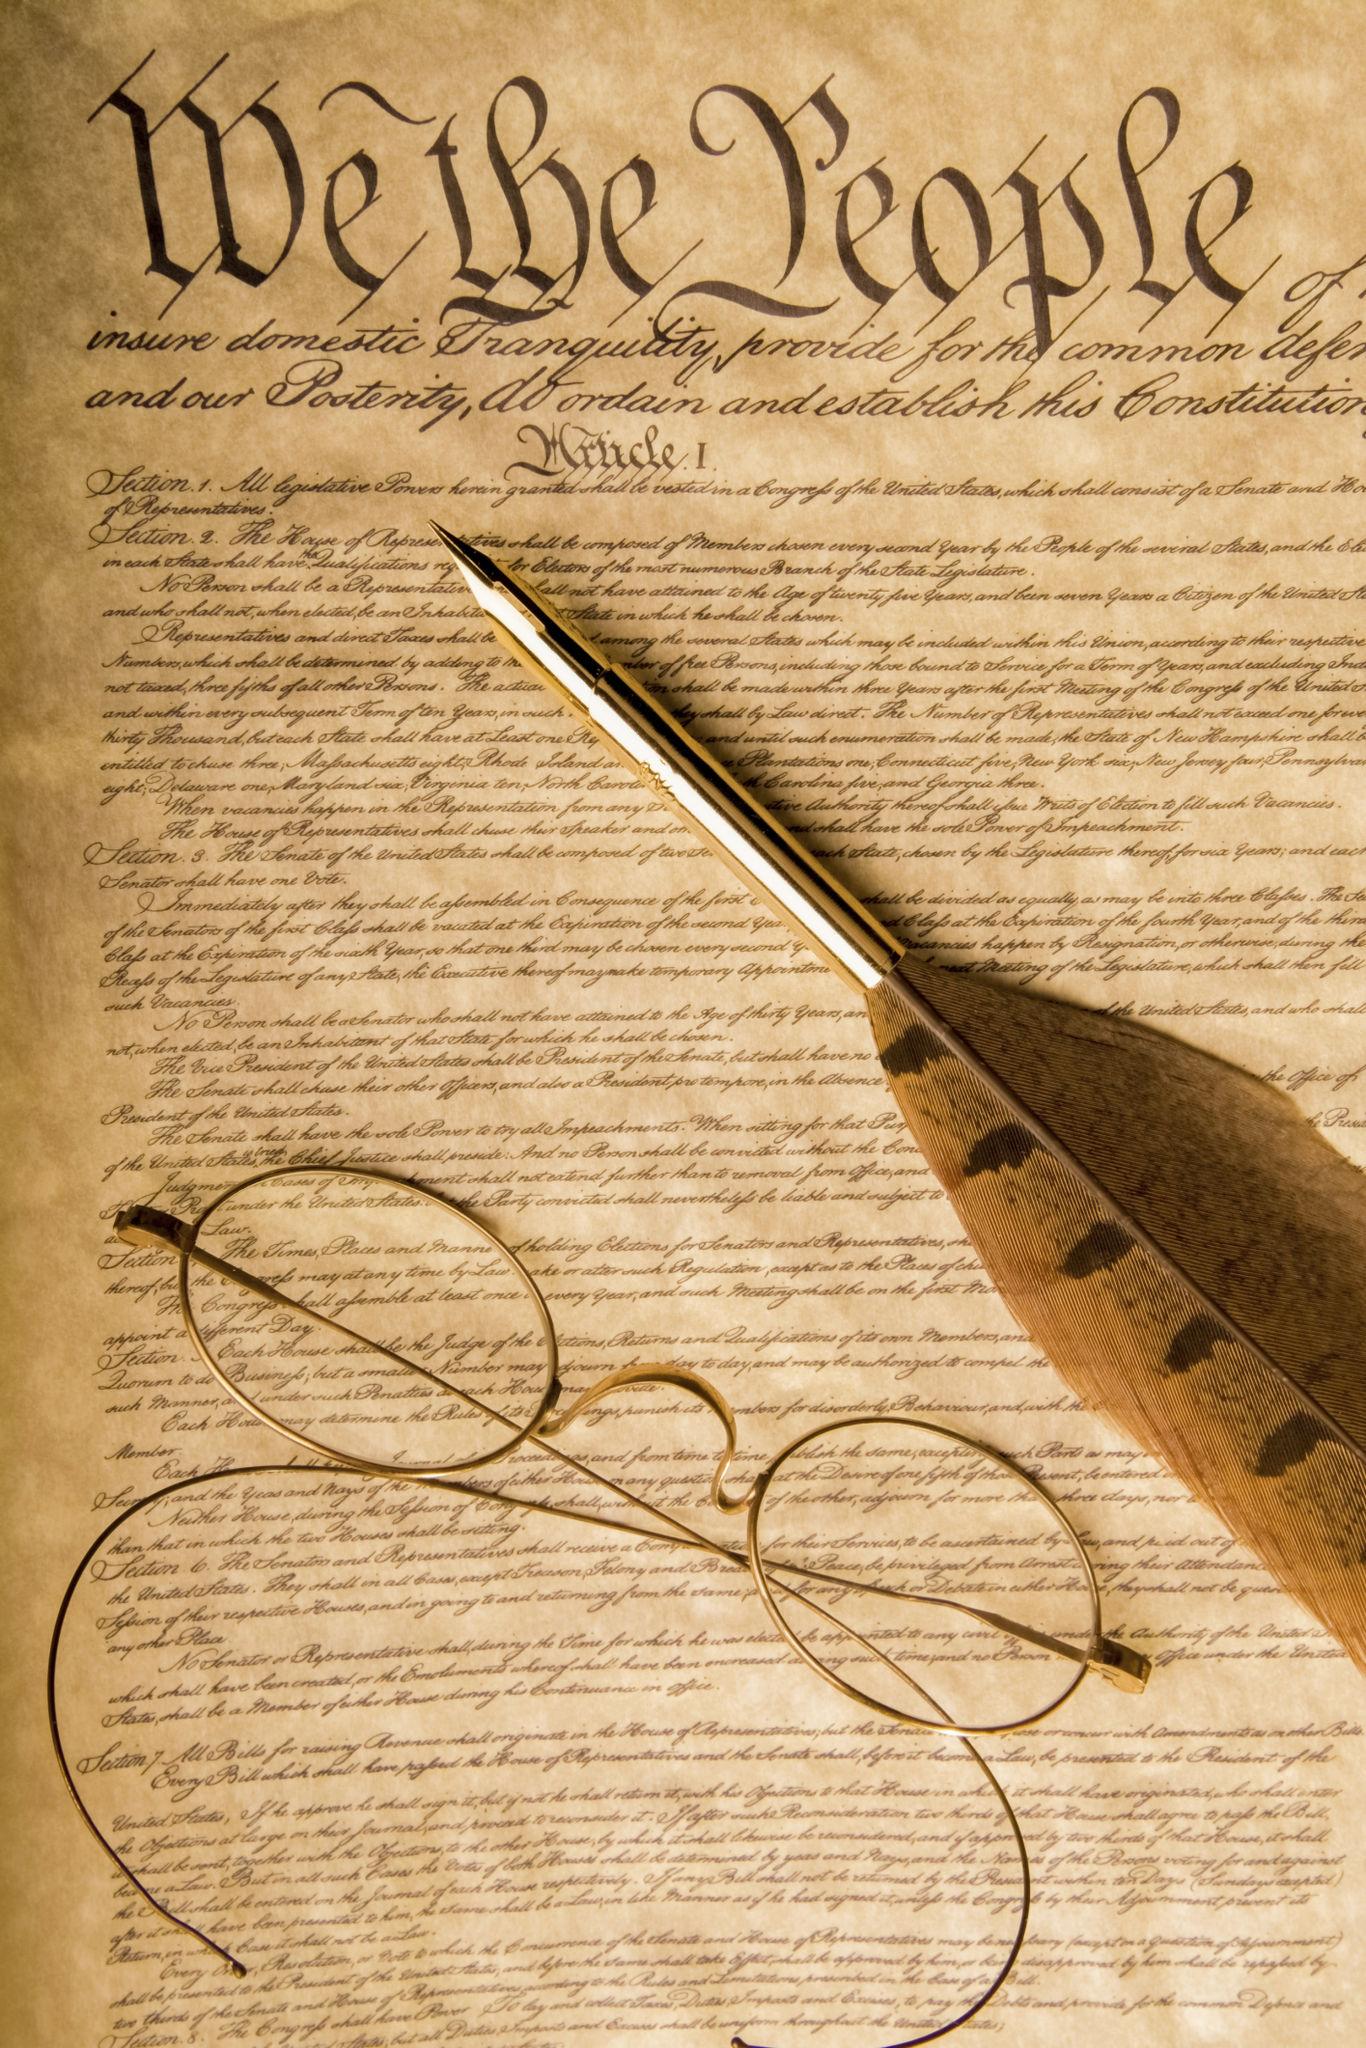 We the People of
insure domestic Tranquility, provide for the common defen
and our Posterity, do ordain and establish this Constitution
Article. I.
Section. 1. All legislative Powers herein granted shall be vested in a Congress of the United States, which shall consist of a Senate and Ho
of Representatives.
Section. 2. The House of Represe tatives shall be composed of Members chosen every second Year by the People of the several States, and the Ele
in each State shall have the Qualifications req for Electors of the most numerous Branch of the State Legislature.
No Person shall be a Representative shall not have attained to the Age of twenty five Years, and been seven Years a Citizen of the United St
and who shall not, when elected, be an Inhabita State in which he shall be chosen.
Representatives and direct Taxes shall be among the several States which may be included within this Union, according to their respective
Numbers, which shall be determined by adding to the number of free Persons, including those bound to Service for a Term of Years, and excluding Indi
not taxed, three fifths of all other Persons. The actua shall be made within three Years after the first Meeting of the Congress of the United S
and within every subsequent Term of ten Years, in such they shall by Law direct. The Number of Representatives shall not exceed one for eve
thirty Thousand, but each State shall have at Least one Re and until such enumeration shall be made, the State of New Hampshire shall b
entitled to chuse three, Massachusetts eight, Rhode Island an Plantations one, Connecticut five, New York six, New Jersey four, Pennsylvan
eight, Delaware one, Maryland six, Virginia ten, North Caroli th Carolina five, and Georgia three.
When vacancies happen in the Representation from any S tive Authority thereof shall issue Writs of Election to fill such Vacancies.
The House of Representatives shall chuse their Speaker and ot and shall have the sole Power of Impeachment.
Section. 3. The Senate of the United States shall be composed of two Se each State, chosen by the Legislature thereof, for six Years; and each
Senator shall have one Vote.
Immediately after they shall be assembled in Consequence of the first E shall be divided as equally as may be into three Classes. The Se
of the Senators of the first Class shall be vacated at the Expiration of the second Yea Class at the Expiration of the fourth Year, and of the third
Class at the Expiration of the sixth Year, so that one third may be chosen every second Y Vacancies happen by Resignation, or otherwise, during the
Recess of the Legislature of any State, the Executive thereof may make temporary Appointme next Meeting of the Legislature, which shall then fill
such Vacancies.
No Person shall be a Senator who shall not have attained to the Age of thirty Years, an of the United States, and who shall
not, when elected, be an Inhabitant of that State for which he shall be chosen.
The Vice President of the United States shall be President of the Senate, but shall have no
The Senate shall chuse their other Officers, and also a President pro tempore, in the Absence the Office of
President of the United States.
The Senate shall have the sole Power to try all Impeachments. When sitting for that Pur the Presid
of the United States is tried, the Chief Justice shall preside: And no Person shall be convicted without the Conc
Judgment Cases of Imp ment shall not extend further than to removal from Office, and
under the United States: the Party convicted shall nevertheless be liable and subject to
Law.
Section The Times, Places and Manne of holding Elections for Senators and Representatives, sh
thereof; but the Congress may at any time by Law make or alter such Regulation, except as to the Places of chu
The Congress shall assemble at least once in every Year, and such Meeting shall be on the first Mo
appoint a different Day.
Section. Each House shall be the Judge of the Elections, Returns and Qualifications of its own Members, and
Quorum to do Business; but a smaller Number may adjourn from day to day, and may be authorized to compel the
such Manner, and under such Penalties as each House may provide.
Each House may determine the Rules of its ings, punish its Members for disorderly Behaviour, and, with the
Member.
Each Journal of Proceedings, and from time to time publish the same, excepting such Parts as may
Secrecy; and the Yeas and Nays of the Members of either House on any question shall at the Desire of one fifth of those Present, be entered
Neither House, during the Session of Congress, shall, without the Co of the other, adjourn for more than three days, nor
than that in which the two Houses shall be sitting.
Section 6. The Senators and Representatives shall receive a Comp for their Services, to be ascertained by Law, and paid out of
the United States. They shall in all Cases, except Treason, Felony and Breach of Peace, be privileged from Arrest during their Attendanc
Session of their respective Houses, and in going to and returning from the same; and for any Speech or Debate in either House, they shall not be ques
any other Place
No Senator or Representative shall, during the Time for which he was elected, be appointed to any civil under the Authority of the United
which shall have been created, or the Emoluments whereof shall have been encreased during such time; and no Person Office under the United
States, shall be a Member of either House during his Continuance in office.
Section 7 All Bills for raising Revenue shall originate in the House of Representatives; but the Senate ose or concur with Amendments as on other Bills
Every Bill which shall have passed the House of Representatives and the Senate shall, before it become a Law, be presented to the President of the
United States, If he approve he shall sign it, but if not he shall return it, with his Objections to that House in which it shall have originated, who shall enter
the Objections at large on their Journal, and proceed to reconsider it. If after such Reconsideration two thirds of that House shall agree to pass the Bill,
it shall be sent, together with the Objections, to the other House, by which it shall likewise be reconsidered, and if approved by two thirds of that House, it shall
become a Law. But in all such Cases the Votes of both Houses shall be determined by yeas and Nays, and the Names of the Persons voting for and against
the Bill shall be entered on the Journal of each House respectively. If any Bill shall not be returned by the President within ten Days (Sundays excepted)
after it shall have been presented to him, the Same shall be a Law, in like Manner as if he had signed it, unless the Congress by their Adjournment prevent its
Return, in which Case it shall not be a Law.
Every Order, Resolution, or Vote to which the Concurrence of the Senate and House of Representatives may be necessary (except on a Question of Adjournment)
shall be presented to the President of the United States; and before the Same shall take Effect, shall be approved by him, or being disapproved by him shall be repassed by
two thirds of the Senate and House of Representatives, according to the Rules and Limitations prescribed in the Case of a Bill.
Section. 8. The Congress shall have Power To lay and collect Taxes, Duties, Imposts and Excises, to pay the Debts and provide for the common Defence and
States; but all Duties, Imposts and Excises shall be uniform throughout the United States;